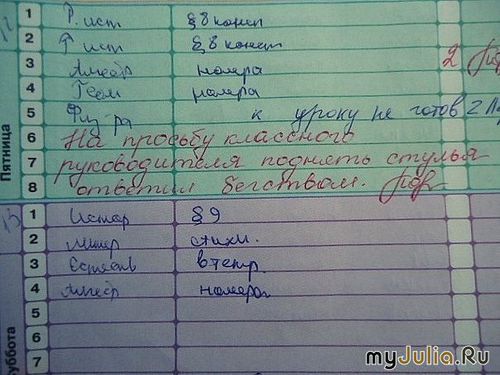 12
1 Р. ист § 8 консп
2 Р ист § 8 консп
3 Алгебр номера 2
4 Геом номера
5 Физ-ра к уроку не готов 2
6 На просьбу классного
7 руководителя поднять стулья
8 ответил бегством.
Пятница
13
1 Истор § 9
2 Литер стихи.
3 Естествь в тетр.
4 Алгебр номера
5
6
7
уббота
myJulia.Ru